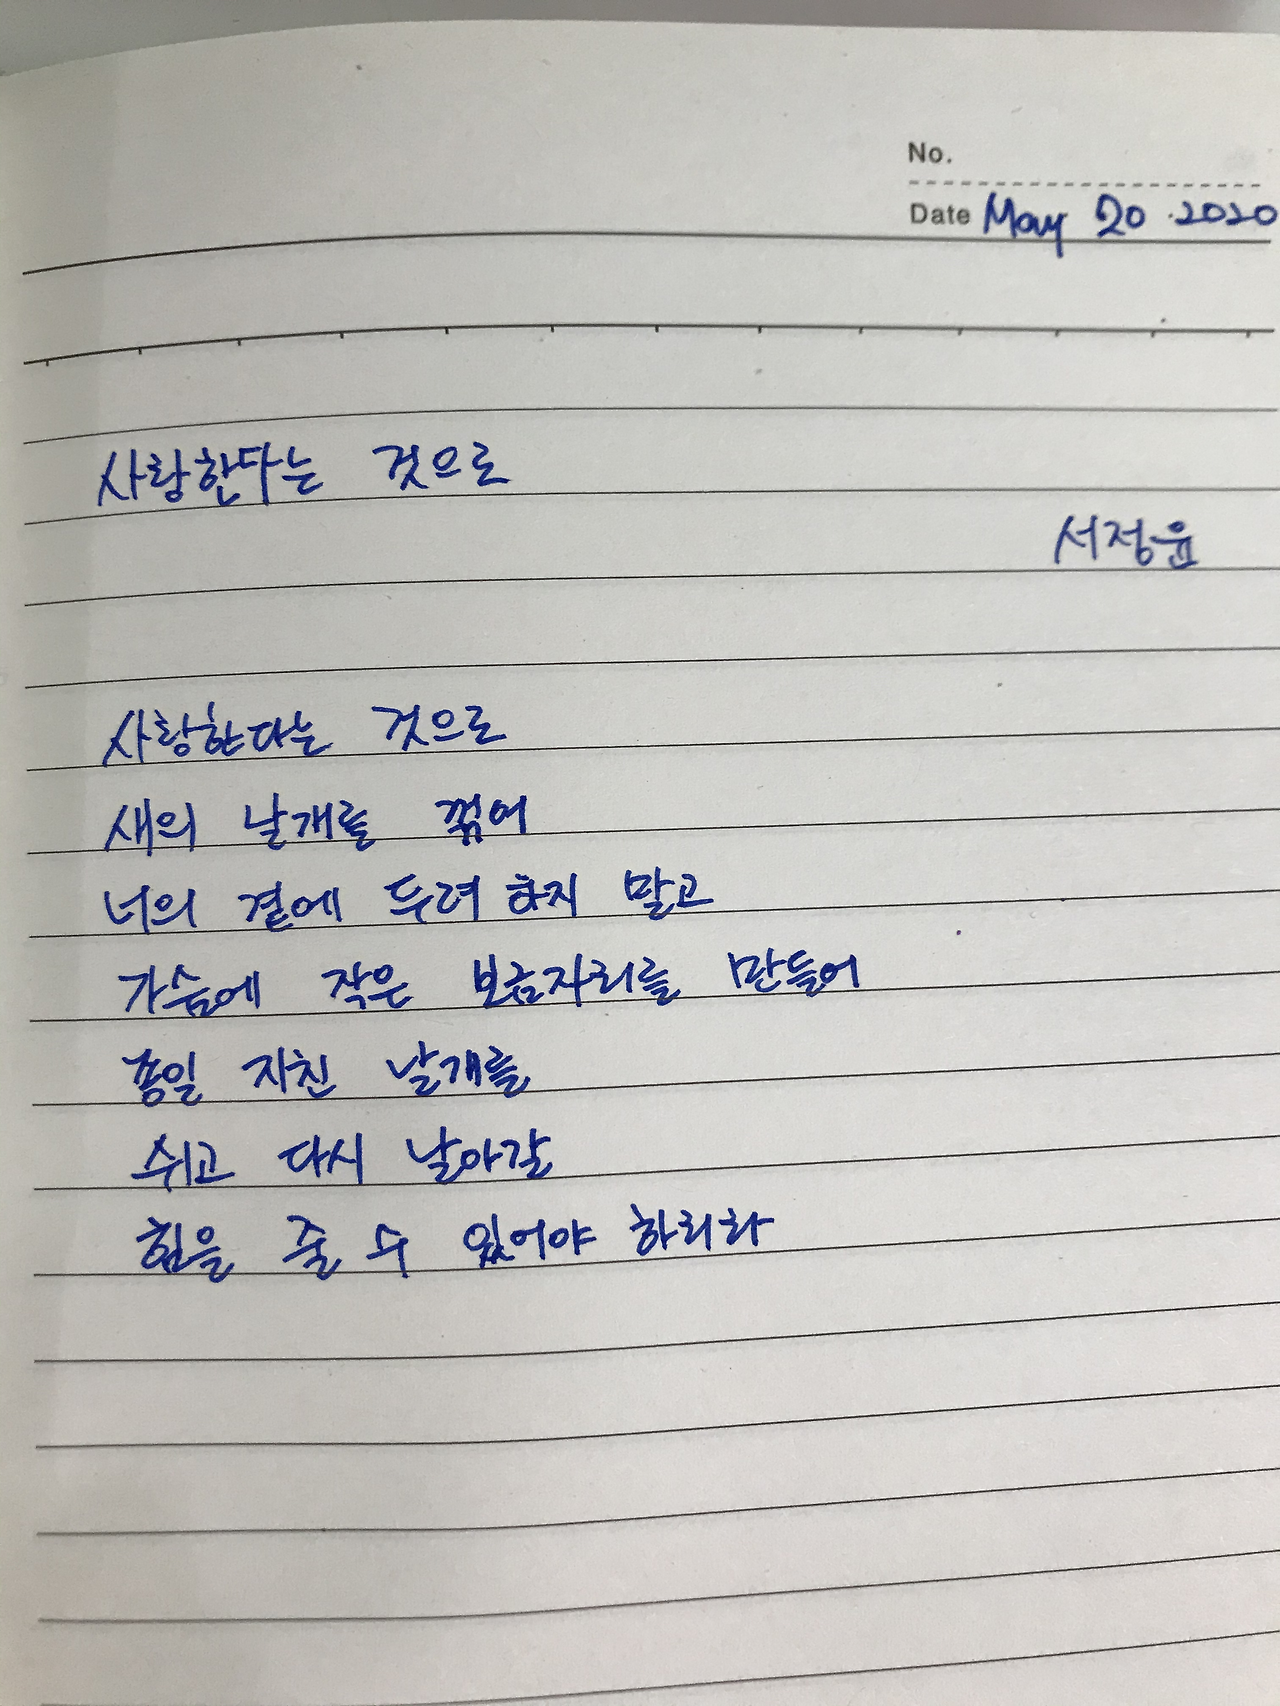 No.
Date May 20. 2020
사랑한다는 것으로
서정윤
사랑한다는 것으로
새의 날개를 꺾어
너의 곁에 두려 하지 말고
가슴에 작은 보금자리를 만들어
종일 지친 날개를
쉬고 다시 날아갈
힘을 줄 수 있어야 하리라